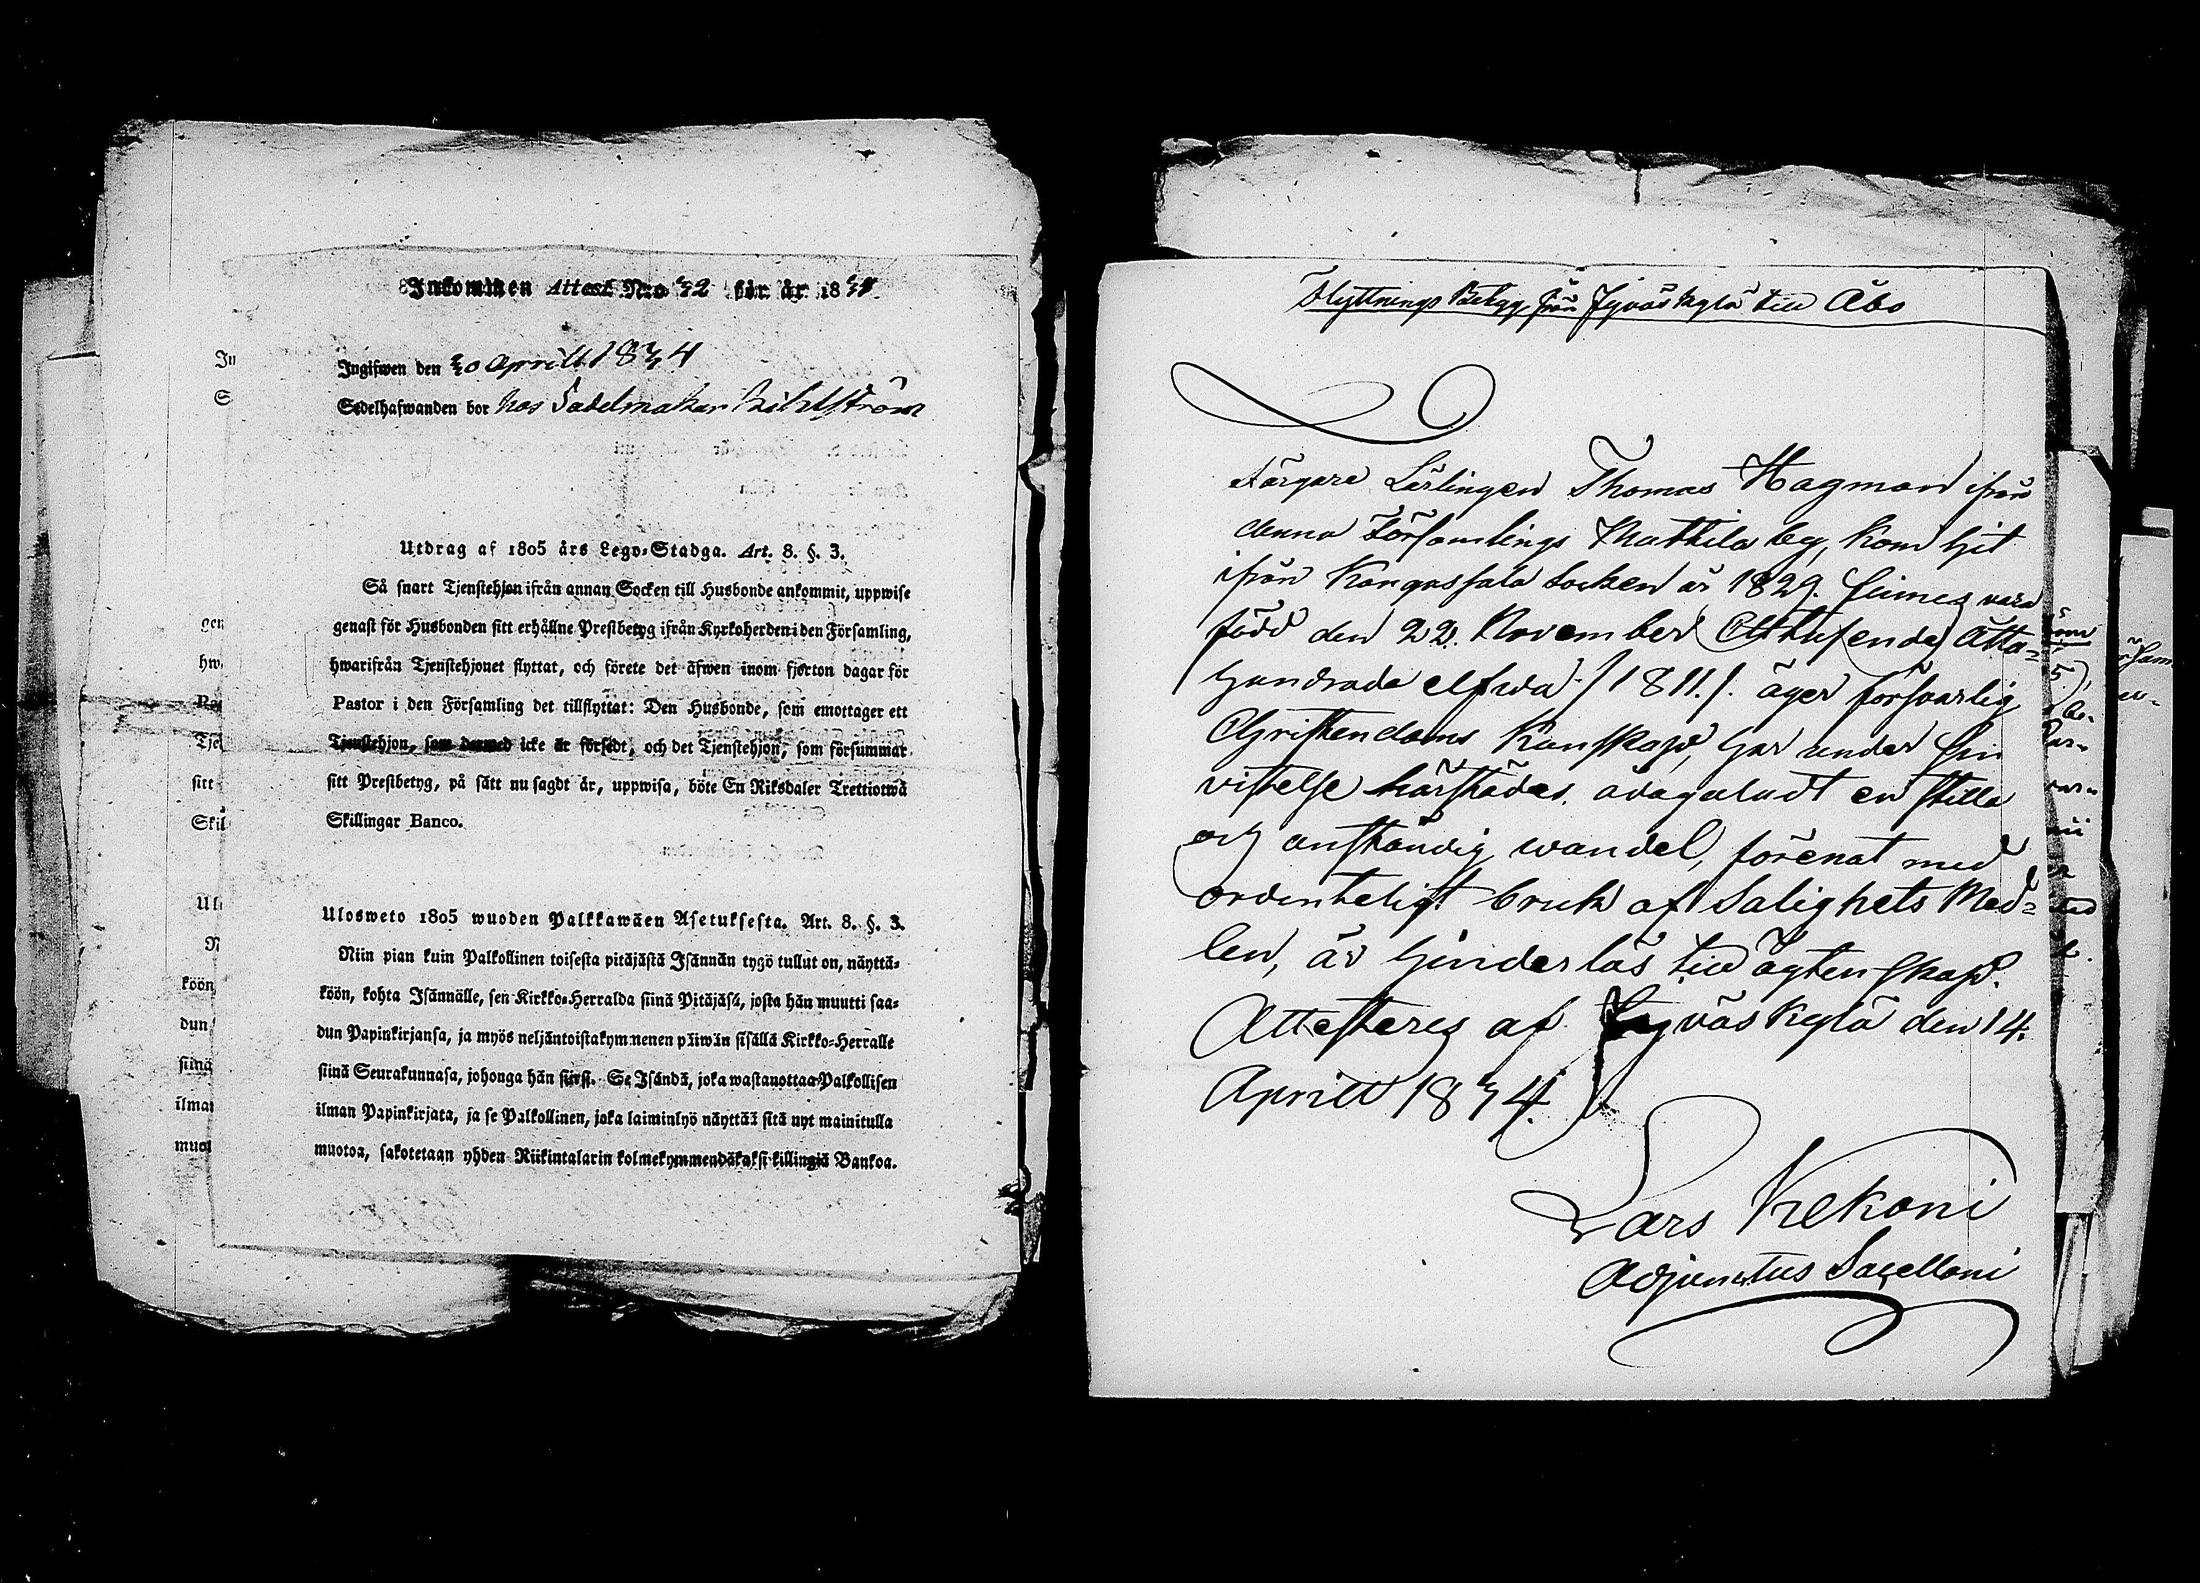 Inkommen Attest N:o 32 för år 1834.
Ingifwen den 30 Aprill 1834
Sedelhafwanden bor hos Sadelmakar
Utdrag af 1805 års Lego-Stadga. Art. 8. §. 3.
Så snart Tjenstehjon ifrån annan Socken till Husbonde ankommit, uppwise
genast för Husbonden sitt erhållne Prestbetyg ifrån Kyrkoherden i den Församling,
hwarifrån Tjenstehjonet flyttat, och förete det äfwen inom fjorton dagar för
Pastor i den Församling det tillflyttat: Den Husbonde, som emottager ett
Tjenstehjon, som dermed icke är försedt, och det Tjenstehjon, som försummar
sitt Prestbetyg, på sätt nu sagdt är, uppwisa, böte En Riksdaler Trettiotwå
Skillingar Banco.
Ulosweto 1805 wuoden Palkkawäen Asetuksesta. Art. 8. §. 3.
Niin pian kuin Palkollinen toisesta pitäjästä Isännän tygö tullut on, näyttä-
köön, kohta Isännälle, sen Kirkko-Herralda siinä Pitäjäsä, josta hän muutti saa-
dun Papinkirjansa, ja myös neljäntoistakymmenen päiwän sisällä Kirkko-Herralle
siinä Seurakunnasa, johonga hän siirsi. Se Isändä, joka wastanottaa Palkollisen
ilman Papinkirjata, ja se Palkollinen, joka laiminlyö näyttää sitä nyt mainitulla
muotoa, sakotetaan yhden Riikintalarin kolmekymmendäkaksi killingiä Bankoa.
In
S
gen
hw
Pa
Tje
sitt
Skil
Ul
N
köön
dun
siinä
ilman
muot
Flyttnings Betyg, från Jyväskylä till Åbo
Färgare Lärlingen Thomas Hagman ifrån
denna Församlings Mattila by, kom hit
ifrån Kangasala Socken år 1829. finnes vara
född den 22. November Ettusende Åtta-
hundrade elfwa /1811./. äger försvarlig
Christendoms Kunskap, har under sin
vistelse härstädes, ådagaladt en stilla
och anständig wandel, förenat med
ordenteligt bruk af Salighets Med-
len, är hinderlös till Ägtenskap.
Attesteres af Jyväskylä den 14.
Aprill 1834.
Lars Kekoni
Adjunctus Sacellani